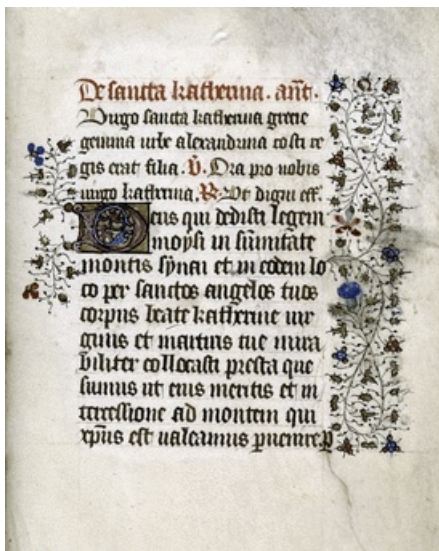 De sancta katherina. ant̄.
Virgo sancta katherina grecie
gemma urbe alexandrina costi re
gis erat filia. V̄. Ora pro nobis
virgo katherina. R. Vt digni eff.
Deus qui dedisti legem
moysi in sūmitate
montis synai et in eodem lo
co per sanctos angelos tuos
corpus beate katherine vir
ginis et martiris tue mira
biliter collocasti presta que
sumus ut eius meritis et in
tercessione ad montem qui
xp̄us est ualeamus puenire p